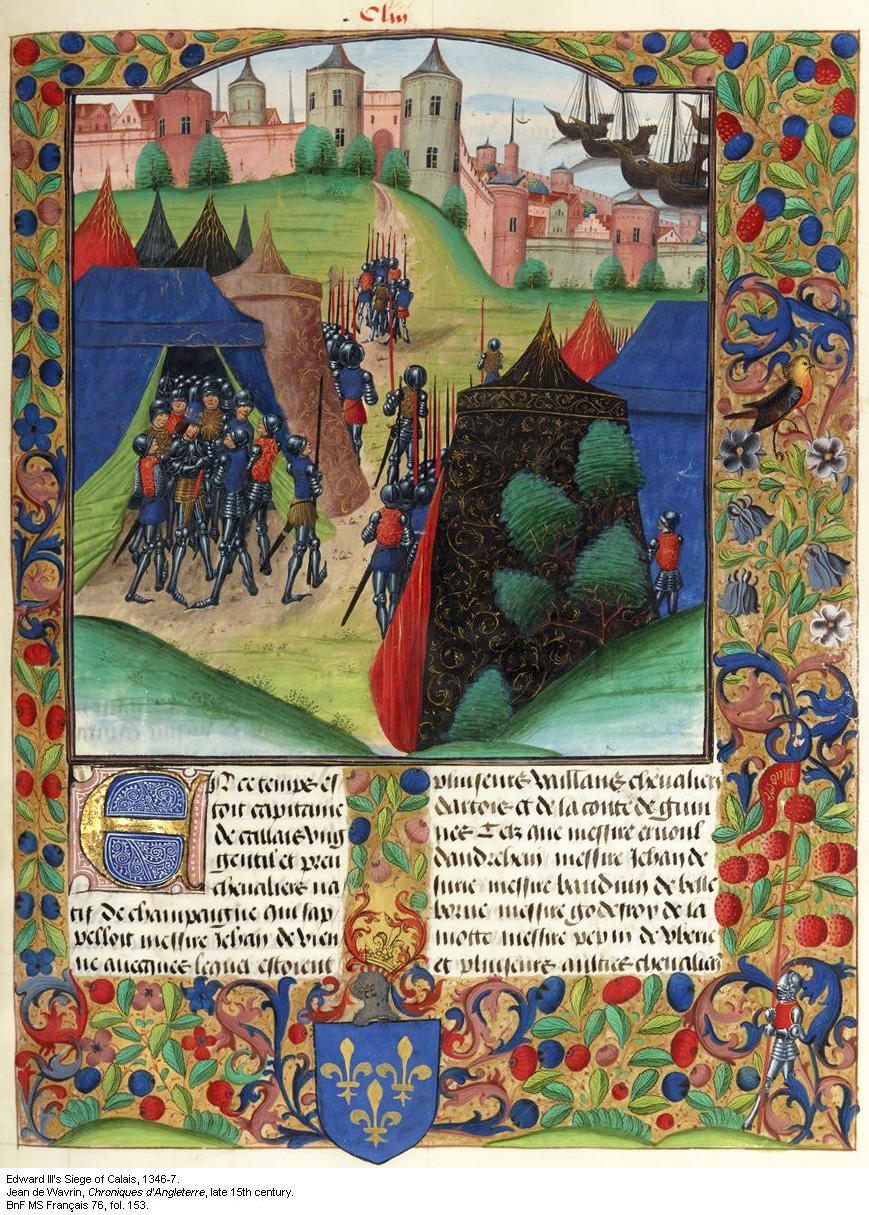 Cliii
En ce temps es
toit capitaine
de callais vng
gentil et preu
chevaliers na
tif de champaigne qui sap
pelloit messire Jehan de vien
ne auecques lequel estoient
pluiseurs vaillans chevaliers
dartois et de la conte de guin
nes Telz que messire ernoul
dandrehem messire Jehan de
surie messire bauduin de belle
borne messire godefroy de la
motte messire pepin de
et pluiseurs aultres chevaliers
Edward III's Siege of Calais, 1346-7.
Jean de Wavrin, Chroniques d'Angleterre, late 15th century.
BnF MS Français 76, fol. 153.